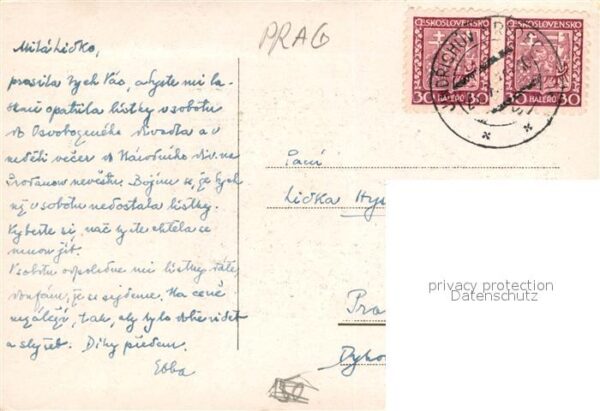 PRAG
ČESKOSLOVENSKO ČESKOSLOVENSKO
30 HALÉŘŮ 30 HALÉŘŮ 30
Milá Lidko,
prosila bych Vás, abyste mi la-
skavě opatřila lístky v sobotu
do Osvobozeného divadla a v
neděli večer do Národního div. na
Prodanou nevěstu. Bojím se, že bych
už v sobotu nedostala lístky.
Vyberte si, nač byste chtěla se
mnou jít.
V sobotu odpoledne mi lístky dáte,
doufám, že se sejdeme. Na ceně
nezáleží, tak, aby bylo dobře vidět
a slyšet. Díky předem.
Ebba
Paní
Lidka
Pra
privacy protection
Datenschutz
50